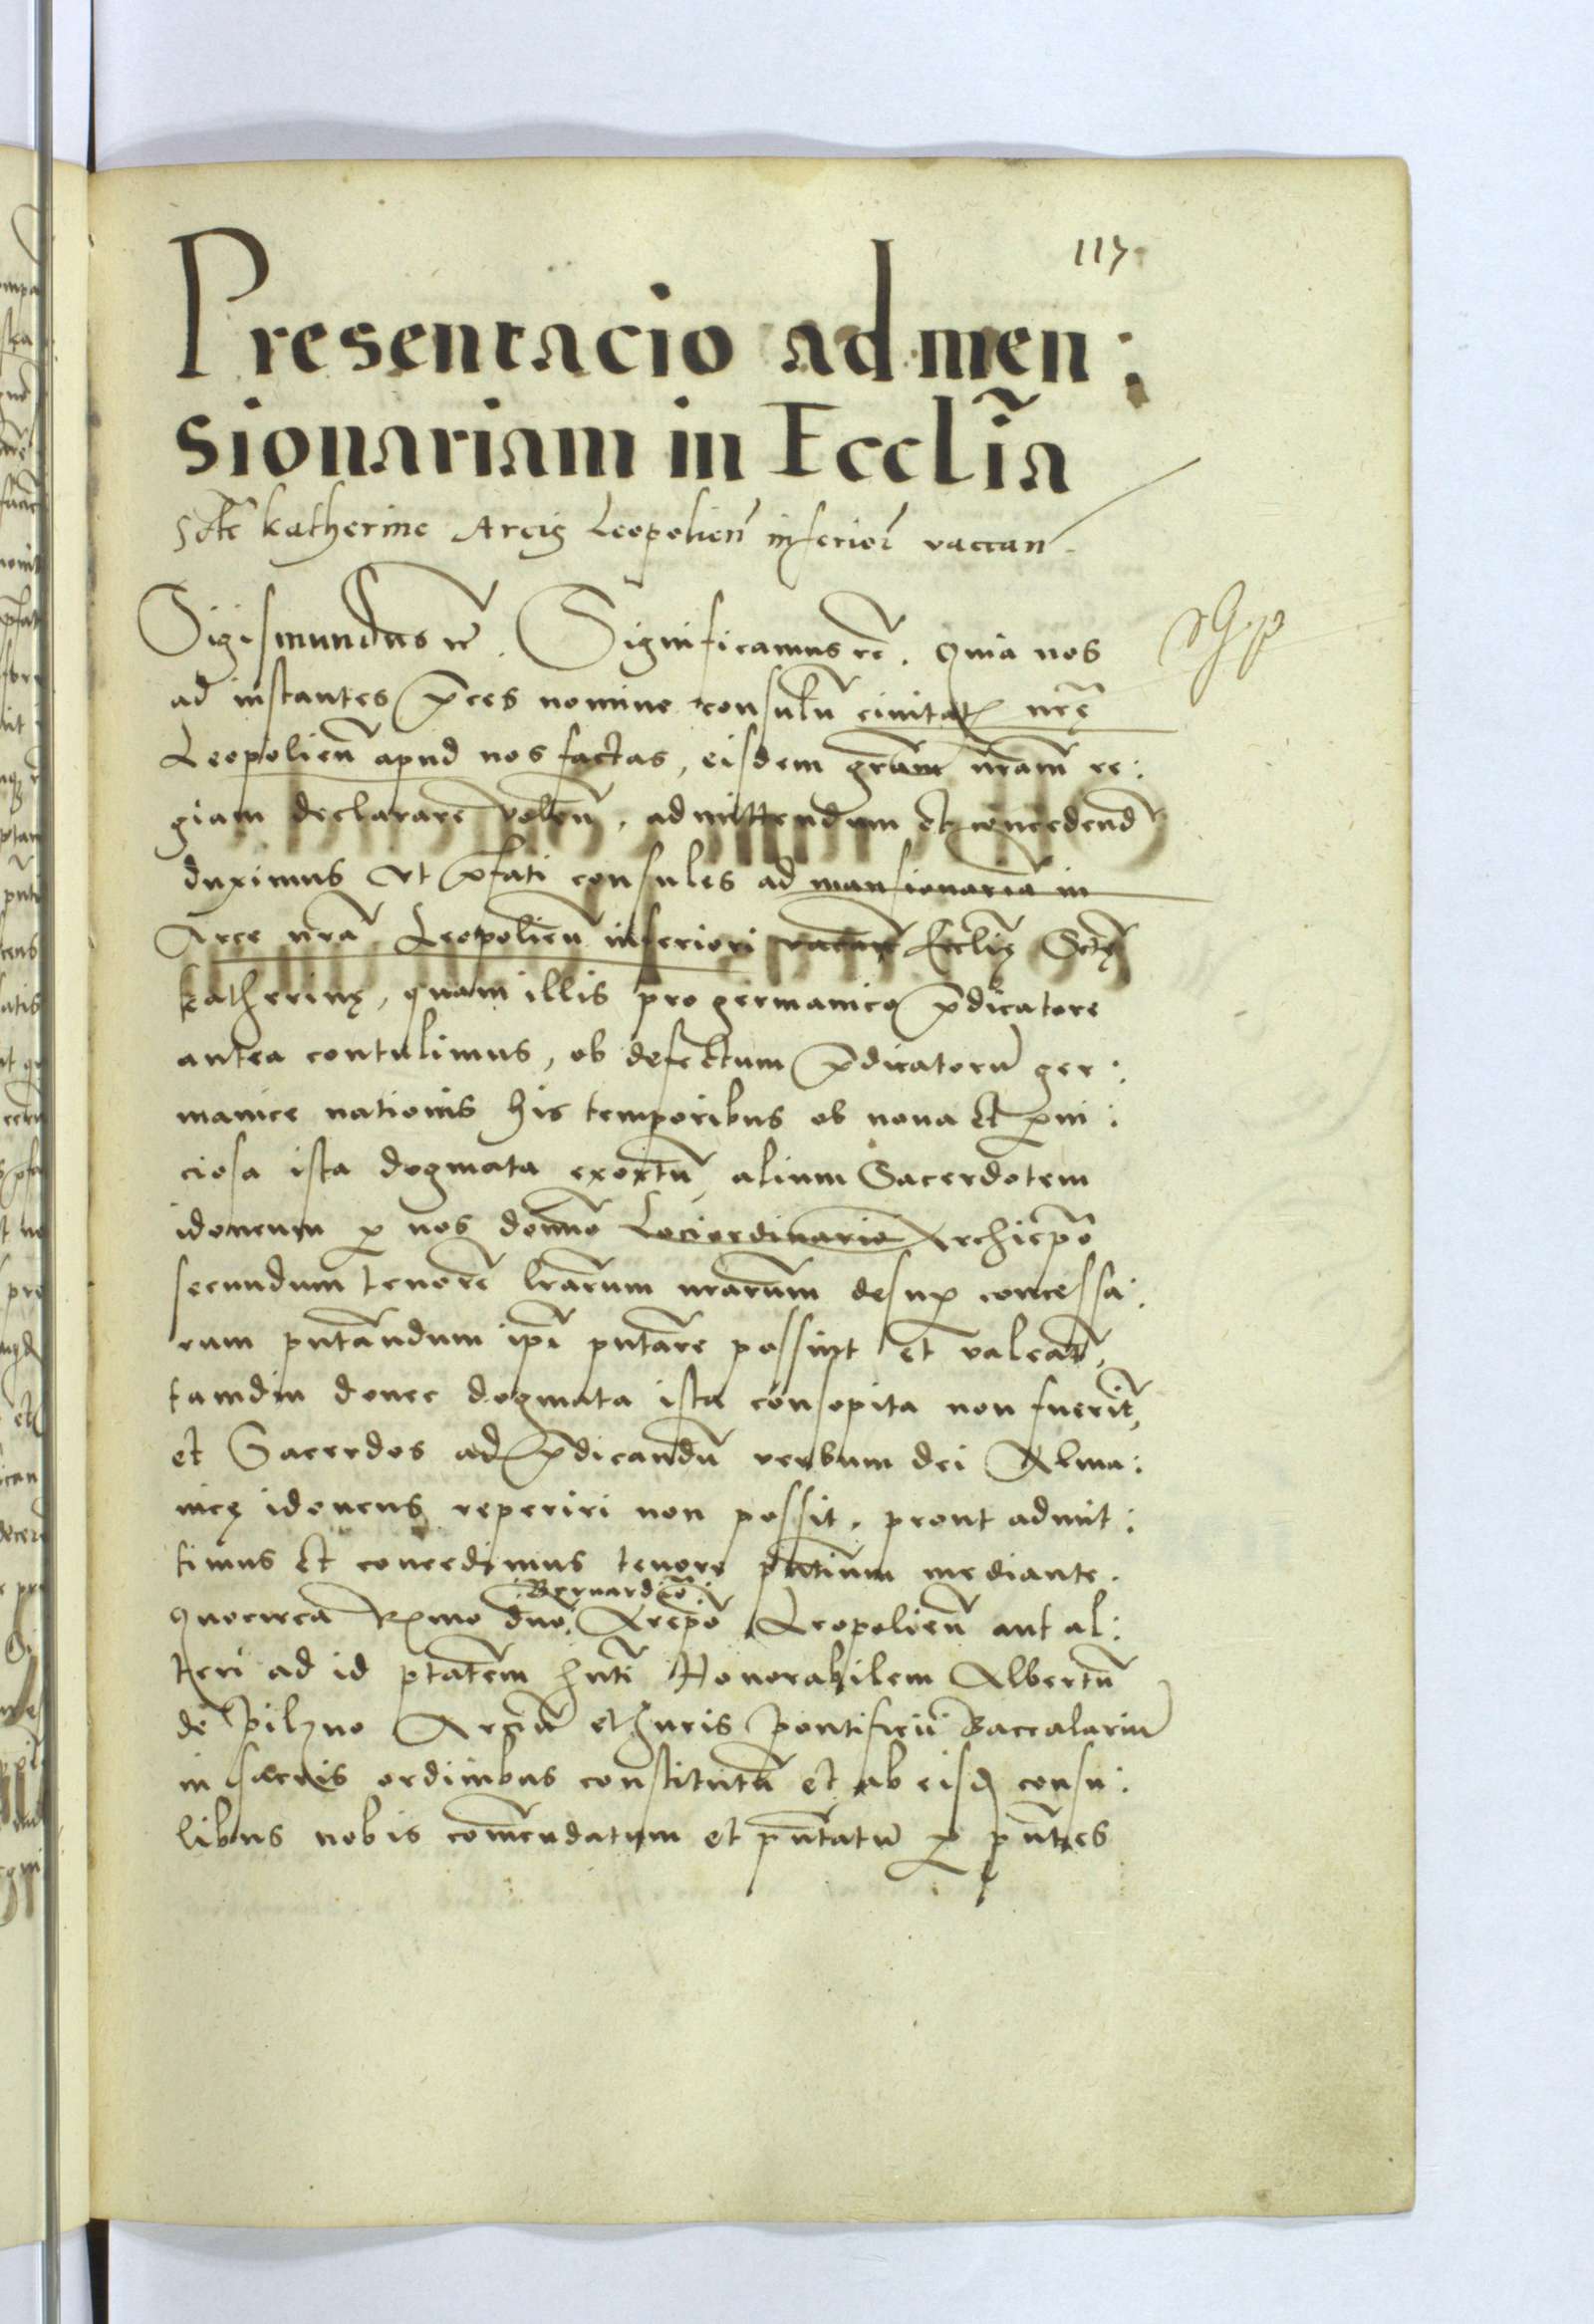 117
Presentacio ad men:
sionariam in Eccl̃ia
Scte Katherine Arcis Leopolien̄ inferior̄ vaccan̄
Sigismundus etc̄. Significamus etc̄. Quia nos
ad instantes p̄ces nomine consulū civitatis nr̄ę
Leopolien̄ apud nos factas, eisdem gr̄am nr̄am re:
giam declarare volen̄, admittendum et concedend̄
duximus Ut p̄fati consules ad mansionariā in
Arce nr̄a Leopolien̄ inferiori vacan̄ Eccl̄ię Sctę
Katherinę, quam illis pro germanico p̄dicatore
antea contulimus, ob defectum p̄dicatorū ger:
manice nationis his temporibus ob nova et p̱ni:
ciosa ista dogmata exortū, alium Sacerdotem
idoneum p̱ nos domīo Lociordinario Archiep̄o
secundum tenorē lr̄arum nr̄arum desup̱ concessa:
rum pn̄tandum ip̄i pn̄tare possint et valeant,
tamdiu donec dogmata ista consopita non fuerīt,
et Sacerdos ad p̄dicandū verbum dei Alma:
nicę idoneus reperiri non possit, prout admit:
timus et concedimus tenore pn̄tium mediante.
:Bernardīo:
Quocirca Rs̄mo dn̄o Arcep̄o Leopolien̄ aut al:
teri ad id p̄tatem hn̄ti Honorabilem Albertū
de Pilzno Arciū et Juris Pontificū Baccalariū
in sacris ordinibus constitutū et ab eisd̄ consu:
libus nobis com̄endatum et pn̄tatū p̱ pn̄tes